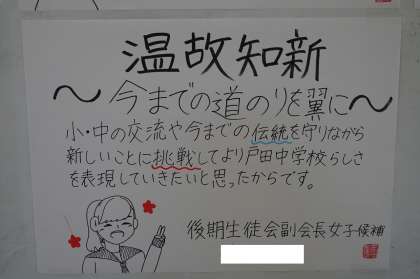 温故知新
～今までの道のりを翼に～
小・中の交流や今までの伝統を守りながら
新しいことに挑戦してより戸田中学校らしさ
を表現していきたいと思ったからです。
後期生徒会副会長女子候補